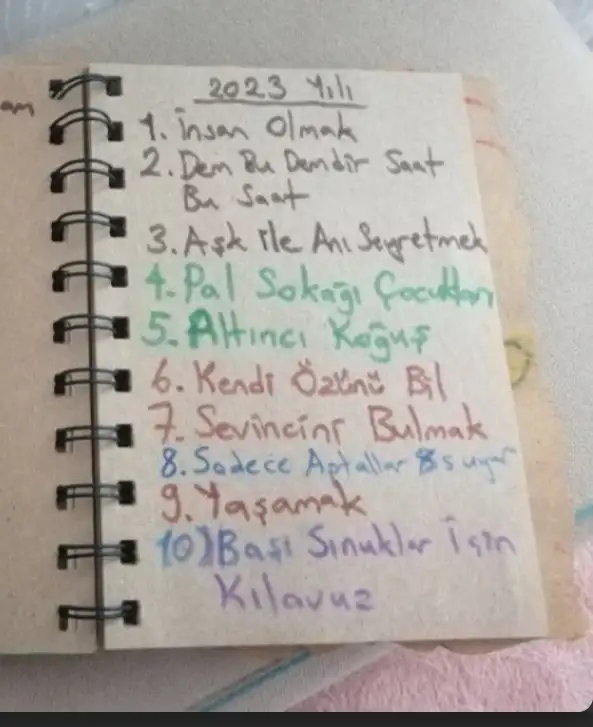 am
2023 Yılı
1. İnsan Olmak
2. Dem Bu Demdir Saat
Bu Saat
3. Aşk ile Anı Seyretmek
4. Pal Sokağı Çocukları
5. Altıncı Koğuş
6. Kendi Özünü Bil
7. Sevincini Bulmak
8. Sadece Aptallar 8s uyur
9. Yaşamak
10) Başı Sınuklar İçin
Kılavuz